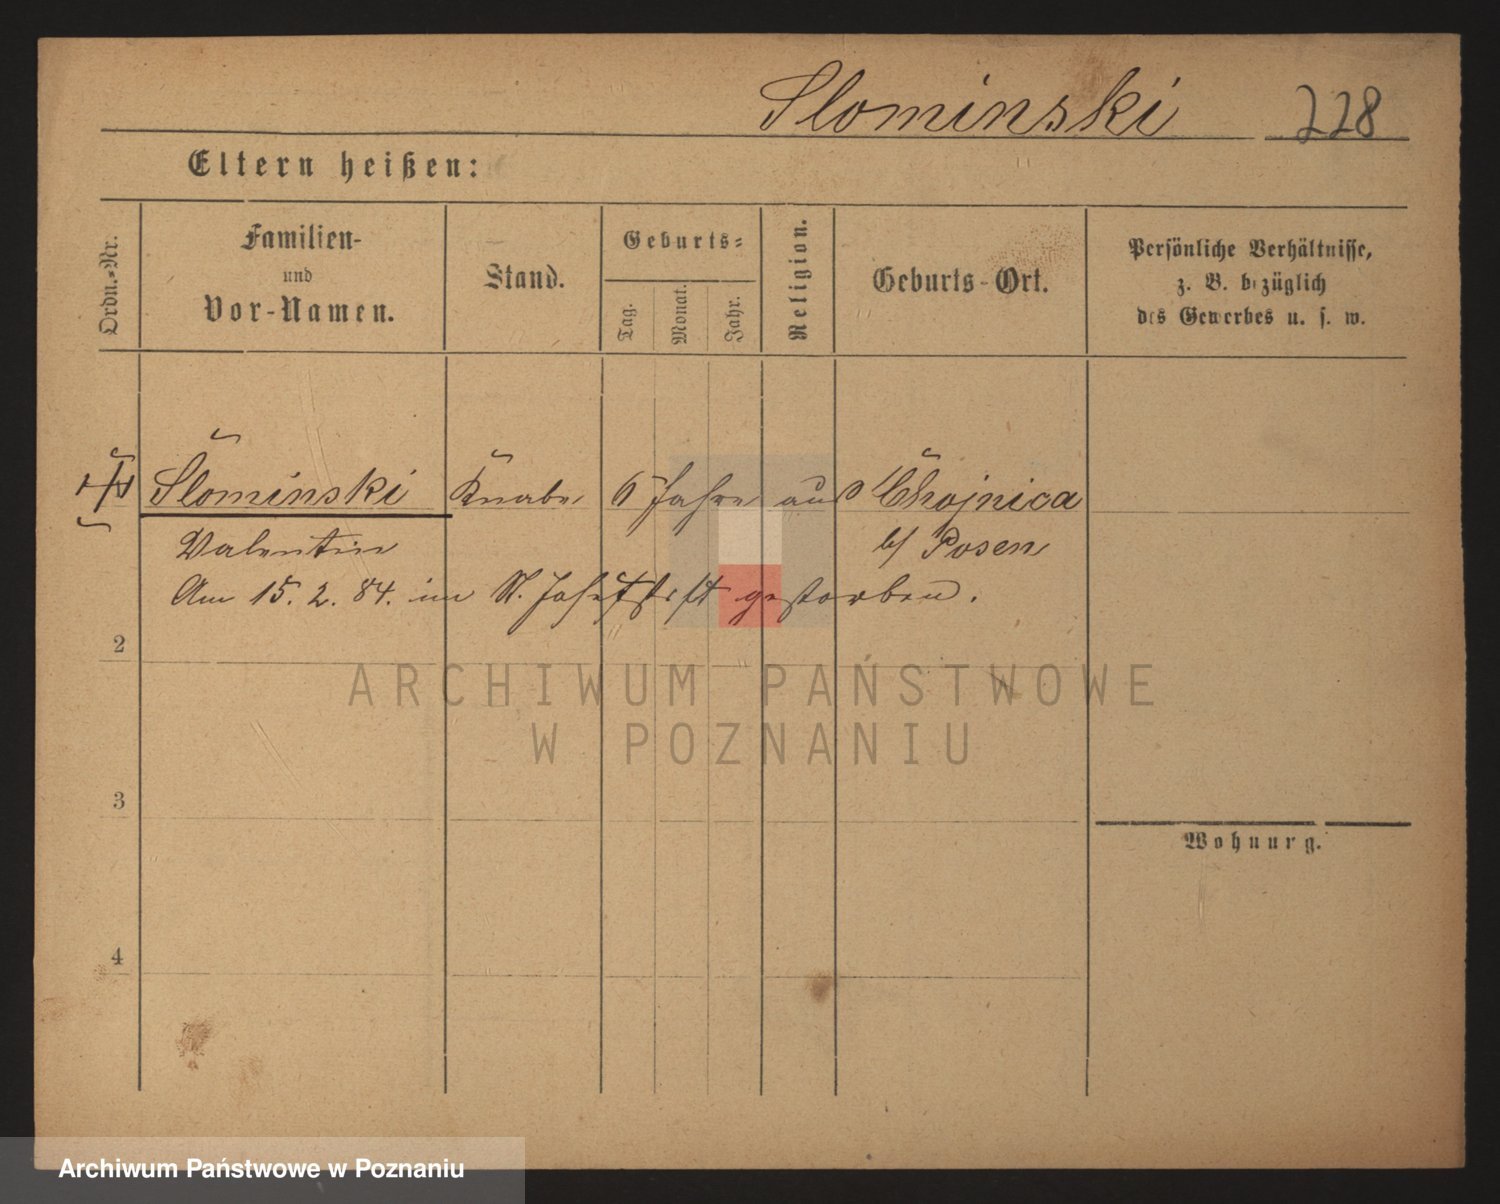 Slominski 228
Eltern heißen:
Ordn.-Nr.
Familien-
und
Vor-Namen.
Stand.
Geburts-
Tag.
Monat.
Jahr.
Religion.
Geburts-Ort.
Persönliche Verhältnisse,
z. B. bezüglich
des Gewerbes u. s. w.
Slominski Knabe 6 Jahre aus Chojnica
Valentin b/ Posen
Am 15. 2. 84. im St. Josefstift gestorben.
2
ARCHIWUM PAŃSTWOWE
W POZNANIU
3
Wohnung.
4
Archiwum Państwowe w Poznaniu